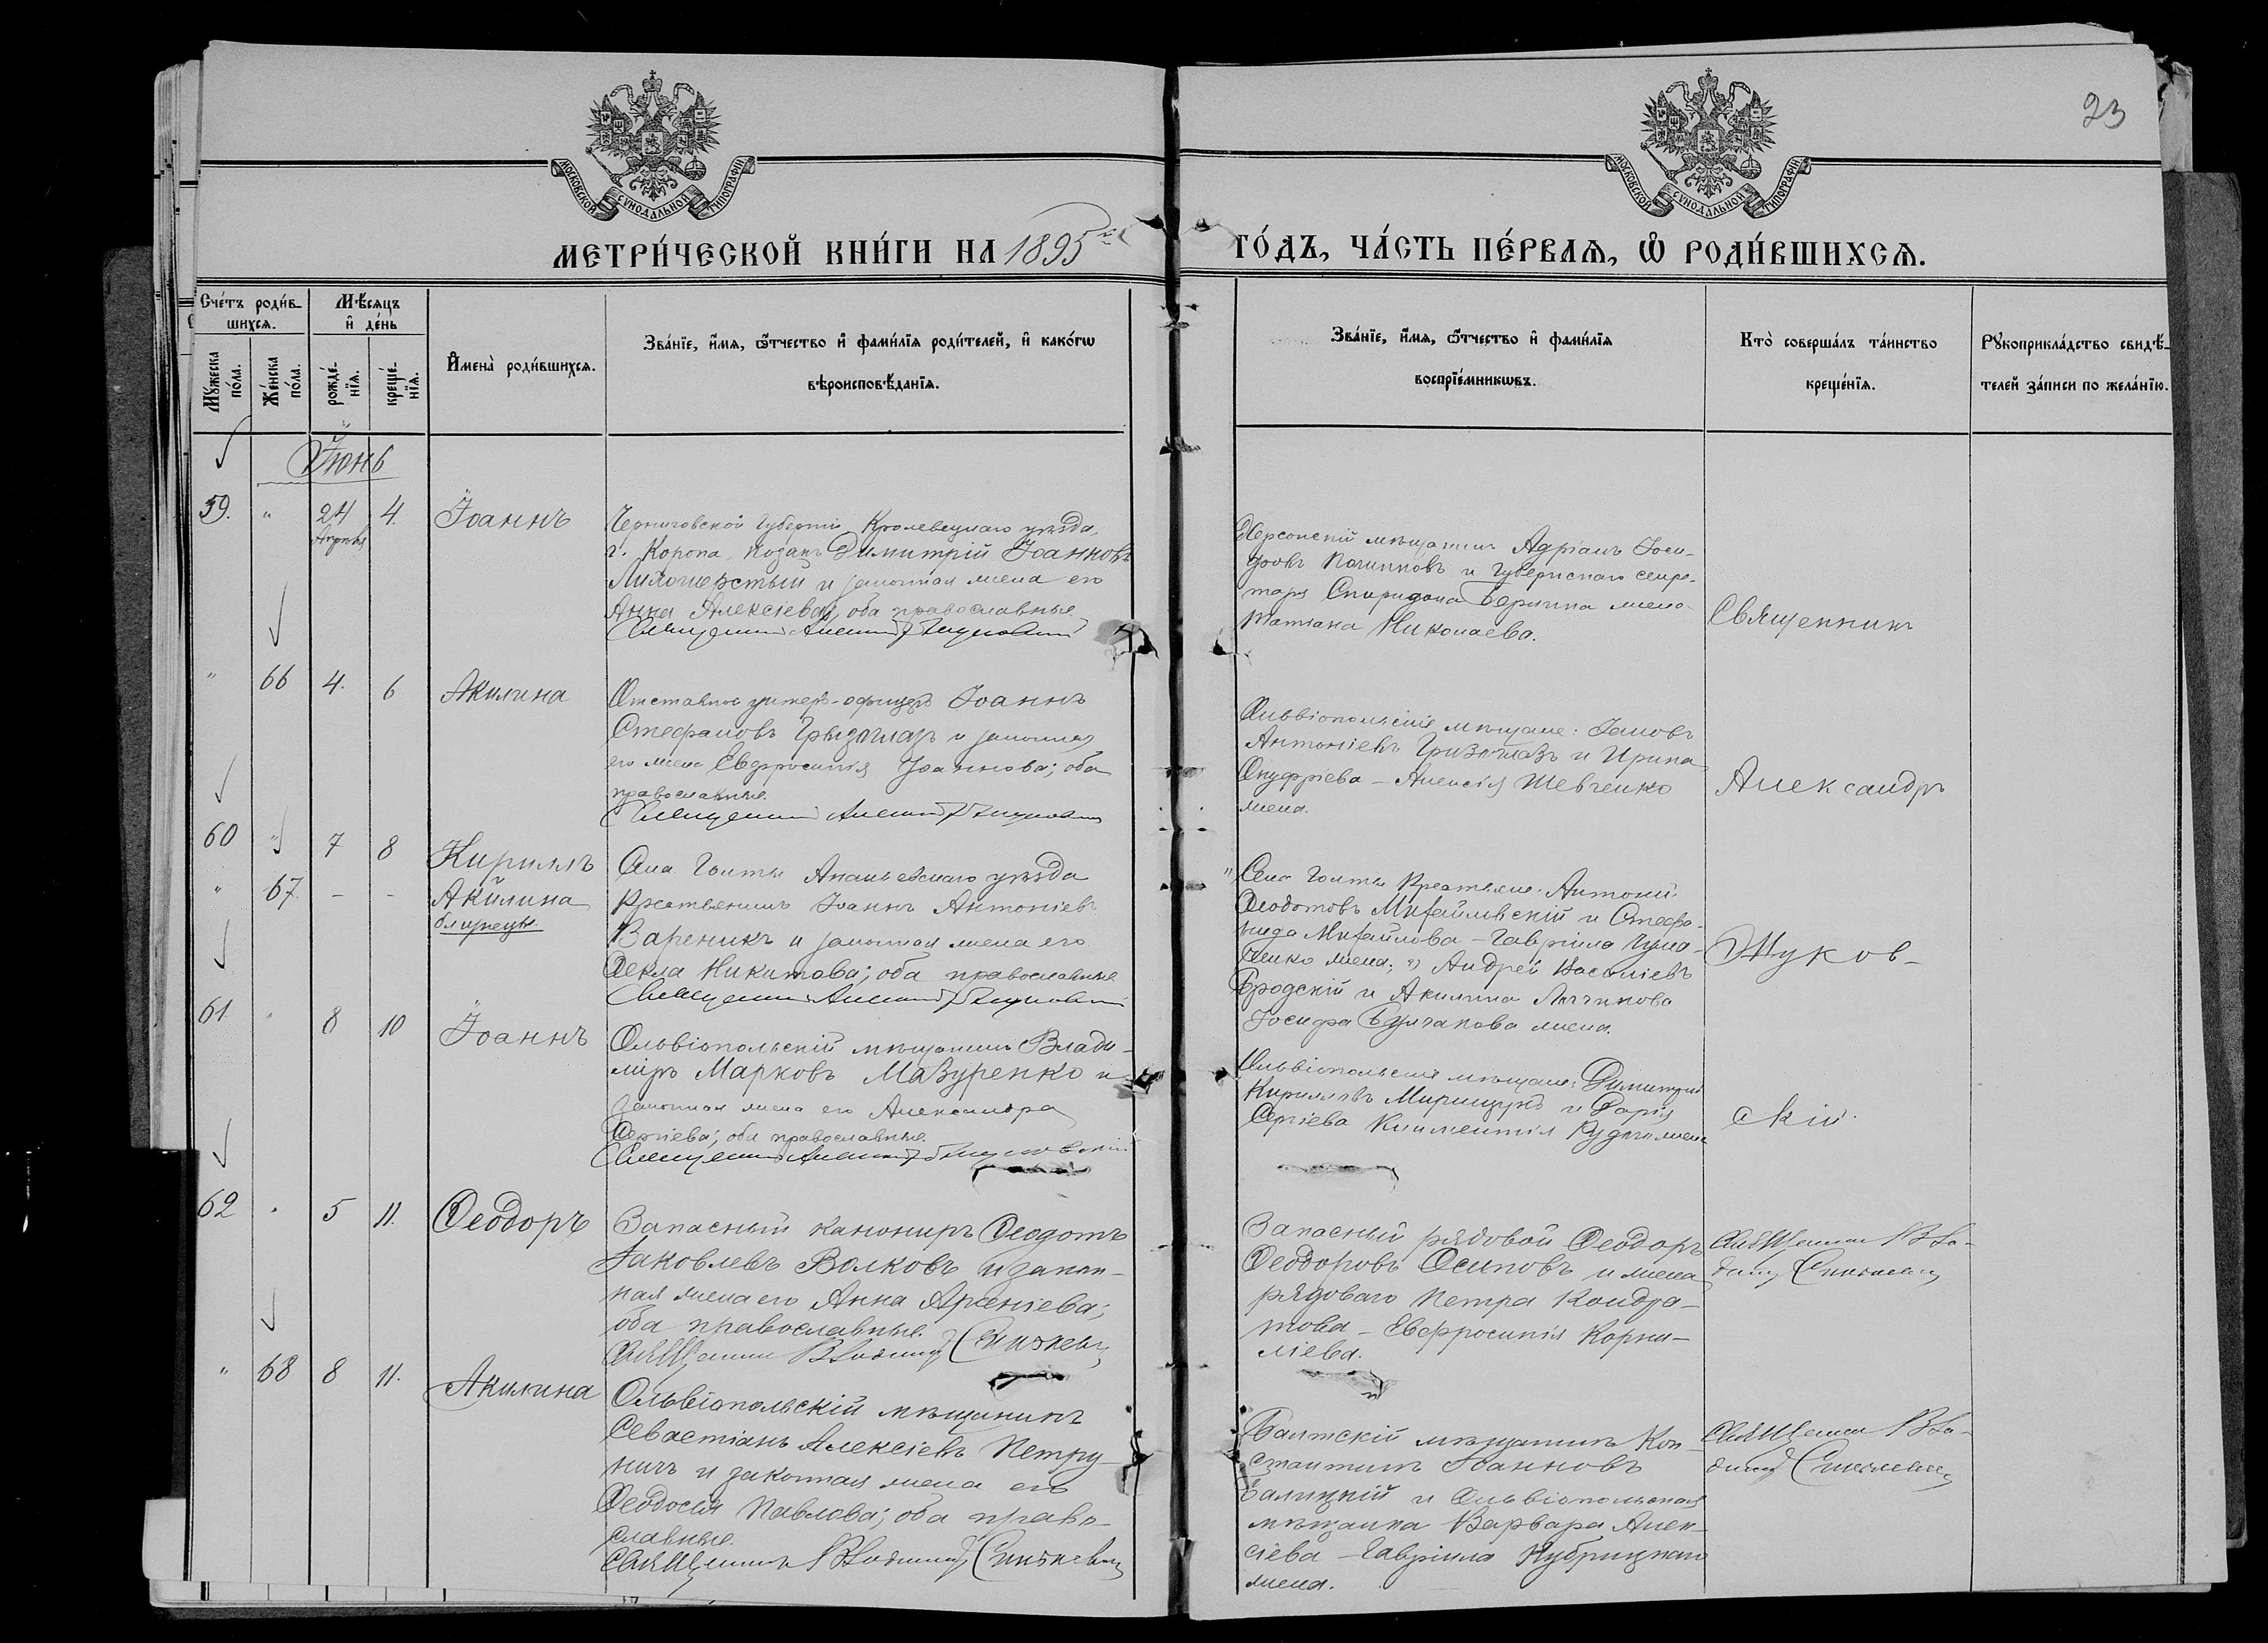 23
МОСКОВСКОЙ СѴНОДАЛЬНОЙ ТИПОГРАФІИ
МОСКОВСКОЙ СѴНОДАЛЬНОЙ ТИПОГРАФІИ
МЕТРИ́ЧЕСКОЙ КНИ́ГИ НА 1895
ГО́ДЪ, ЧА́СТЬ ПЕ́РВАѦ, Ѡ҆ РОДИ́ВШИХСѦ.
Сче́тъ роди́в-
шихсѧ.
Мꙋ́жеска по́ла.
Же́нска по́ла.
Мѣ́сѧцъ
и҆ де́нь
рожде́-
нїѧ.
креще́-
нїѧ.
И҆мена̀ роди́вшихсѧ.
Зва́нїе, и҆́мѧ, ѻ҆́тчество и҆ фами́лїѧ роди́телей, и҆ како́гѡ
вѣроисповѣ́данїѧ.
Зва́нїе, и҆́мѧ, ѻ҆́тчество и҆ фами́лїѧ
воспрїе́мникѡвъ.
Кто̀ соверша́лъ та́инство
креще́нїѧ.
Рꙋкоприкла́дство свидѣ́-
телей за́писи по жела́нїю.
Іюнь
59. " 24 4. Іоаннъ
Апрѣля
Черниговской губерніи Кролевецкаго уѣзда,
г. Коропа, козакъ Димитрій Іоанновъ
и законная жена его
Анна Алексіева, оба православные.
Священникъ
Херсонскій мѣщанинъ Адріанъ Іоси-
фовъ и Губернскаго секре-
таря Спиридона жена
Татіана Николаева.
Священникъ
" 66 4. 6 Акилина
Отставной унтеръ-офицеръ Іоаннъ
Стефановъ Грызоглазъ и законная
его жена Евфросинія Іоаннова; оба
православные.
Священникъ
Ольвіопольскіе мѣщане: Іаковъ
Антоніевъ Гризоглазъ и Ирина
Онуфріева – Алексія Шевченко
жена.
Александръ
60 " 7 8 Кириллъ
" 67. – – Акилина
близнецы.
Села Голты Ананьевскаго уѣзда
Крестьянинъ Іоаннъ Антоніевъ
Вареникъ и законная жена его
Ѳекла Никитова; оба православные
Священникъ
Села Голты Крестьяне: Антоній
Ѳеодотовъ Михайливскій и Стефа-
нида Михайлова – Гавріила
жена; Андрей Васильевъ
Бродскій и Акилина
Іосифа Булчакова жена.
Жуков-
61. " 8 10 Іоаннъ
Ольвіопольскій мѣщанинъ Влади-
міръ Марковъ Мазуренко и
законная жена его Александра
Сергіева; оба православные.
Священникъ
Ольвіопольскіе мѣщане: Димитрій
Кирилловъ и Дарія
Сергіева Климентія жена
скій.
62 " 5 11. Ѳеодоръ
Запасный канониръ Ѳеодотъ
Іаковлевъ Волковъ и закон-
ная жена его Анна Арсеніева;
оба православные.
Священникъ Владиміръ Синькевичъ
Запасный рядовой Ѳеодоръ
Ѳеодоровъ Осиповъ и жена
рядоваго Петра Кондра-
това – Евфросинія Корни-
ліева.
Священникъ Вла-
диміръ Синькевичъ
" 68 8 11. Акилина
Ольвіопольскій мѣщанинъ
Севастіанъ Алексіевъ Петру-
ничъ и законная жена его
Ѳеодосія Павлова; оба право-
славные.
Священникъ Владиміръ Синькевичъ
Балтскій мѣщанинъ Кон-
стантинъ Іоанновъ
Галицкій и Ольвіопольская
мѣщанка Варвара Алек-
сіева – Гавріила Кубрицкаго
жена.
Священникъ Вла-
диміръ Синькевичъ